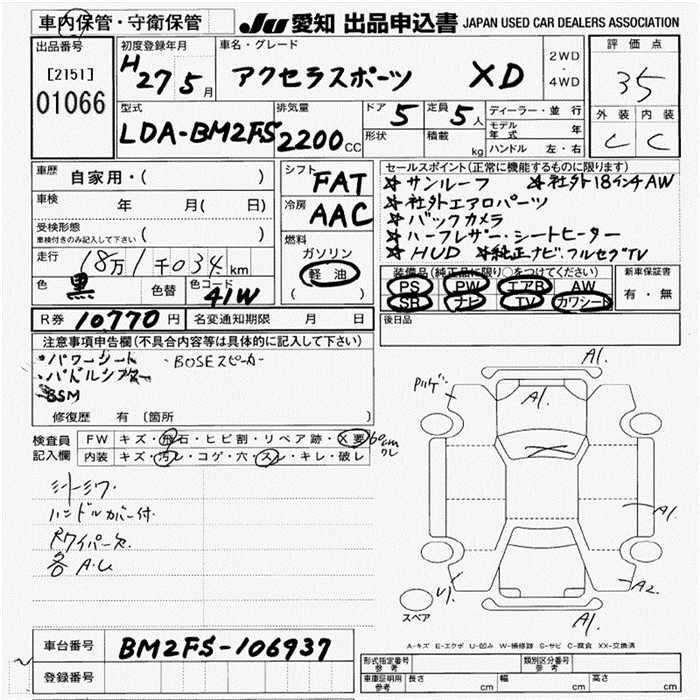 車内保管・守衛保管
JU 愛知 出品申込書 JAPAN USED CAR DEALERS ASSOCIATION
出品番号
[2151]
01066
初度登録年月
H 27 5月
車名・グレード
アクセラスポーツ XD
2WD
・
4WD
評価点
35
外装 内装
C C
型式
LDA-BM2FS
排気量
2200CC
ドア 5
定員 5人
形状
積載 kg
ディーラー・並行
モデル年式 年
ハンドル 左・右
車歴 自家用・( )
車検 年 月( 日)
受検形態
車検付きのみ記入して下さい ( )
走行 18万1千034km
色 黒 色替 色コード 41W
シフト FAT
冷房 AAC
燃料
ガソリン
軽油
( )
セールスポイント(正常に機能するものに限ります)
☆サンルーフ ☆社外18インチAW
☆社外エアロパーツ
☆バックカメラ
☆ハーフレザー・シートヒーター
☆HUD ☆純正ナビ.フルセグTV
装備品(純正品に限り○をつけてください)
PS PW エアB AW
SR ナビ TV カワシート
新車保証書
有・無
R券 10770円 名変通知期限 月 日
後日品
注意事項申告欄(不具合内容等は具体的に記入して下さい)
・パワーシート ・BOSEスピーカー
・パドルシフター
・BSM
修復歴 有 〔箇所 〕
検査員記入欄
FW キズ・飛石・ヒビ割・リペア跡・X要 60cmワレ
内装 キズ・汚レ・コゲ・穴・スレ・キレ・破レ
シートシワ
ハンドルカバー付
Rワイパー欠
各A.U
A1.
A1.
A1.
A2.
U1.
A1.
スペア
A-キズ E-エクボ U-凹み W-補修跡 S-サビ C-腐食 XX-交換済
車台番号 BM2FS-106937
登録番号
形式指定番号 参考
類別区分番号 参考
車庫証明用 参考 長さ cm 幅 cm 高さ cm